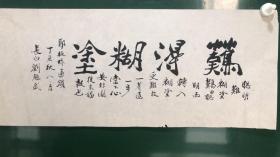 難得糊塗
聰明
難
糊塗
難由聰
明而
轉入
糊塗
更難放
一著退
一步
當下心
安非圖
後來福
報也
丁丑秋八月
長白劉